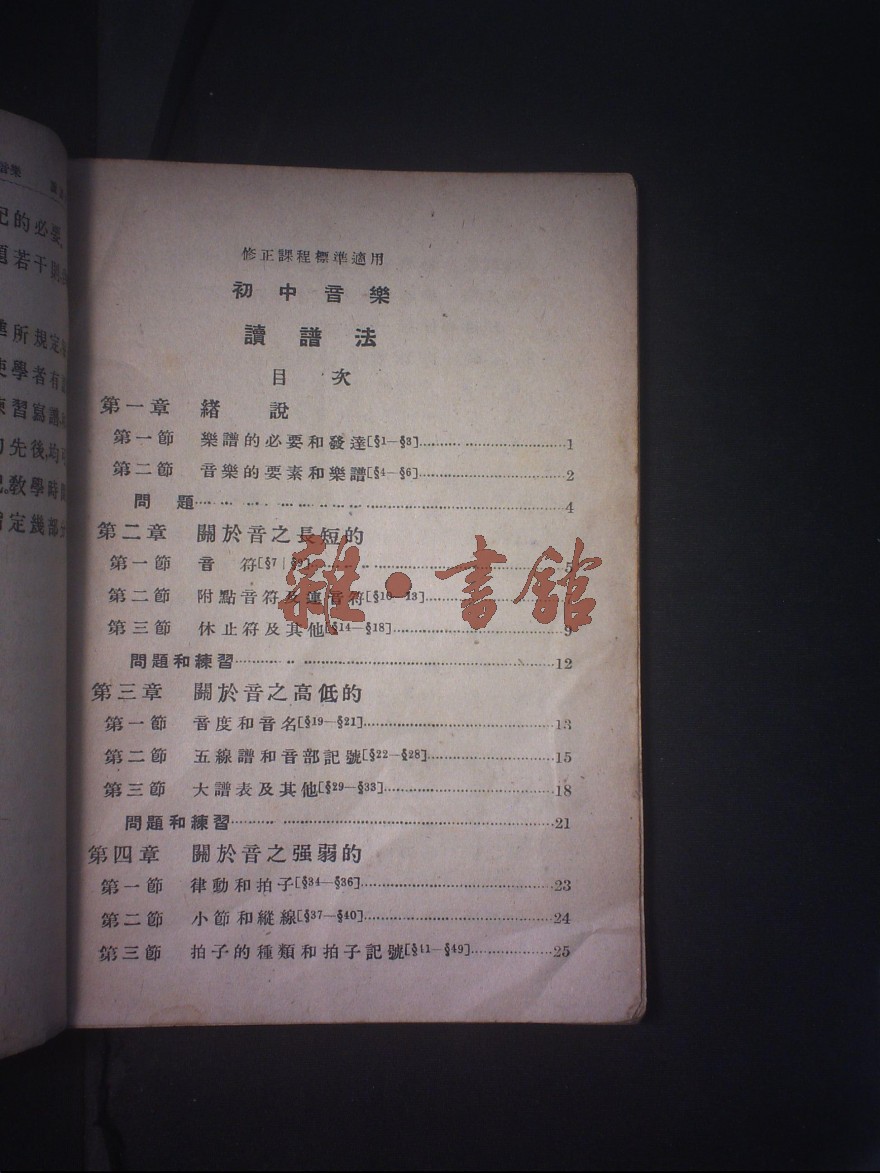 修正課程標準適用
初中音樂
讀譜法
目次
第一章 緒說
第一節 樂譜的必要和發達[§1—§3]……………………1
第二節 音樂的要素和樂譜[§4—§6]……………………2
問題……………………4
第二章 關於音之長短的
第一節 音符[§7|§9]……………………5
第二節 附點音符及連音符[§10—§13]……………………
第三節 休止符及其他[§14—§18]……………………9
問題和練習……………………12
第三章 關於音之高低的
第一節 音度和音名[§19—§21]……………………13
第二節 五線譜和音部記號[§22—§28]……………………15
第三節 大譜表及其他[§29—§33]……………………18
問題和練習……………………21
第四章 關於音之强弱的
第一節 律動和拍子[§34—§36]……………………23
第二節 小節和縱線[§37—§40]……………………24
第三節 拍子的種類和拍子記號[§41—§49]……………………25
雜·書館
音樂
記的必要
題若干則
所規定
學者有
練習寫譜
先後,均可
教學時間
指定幾部分